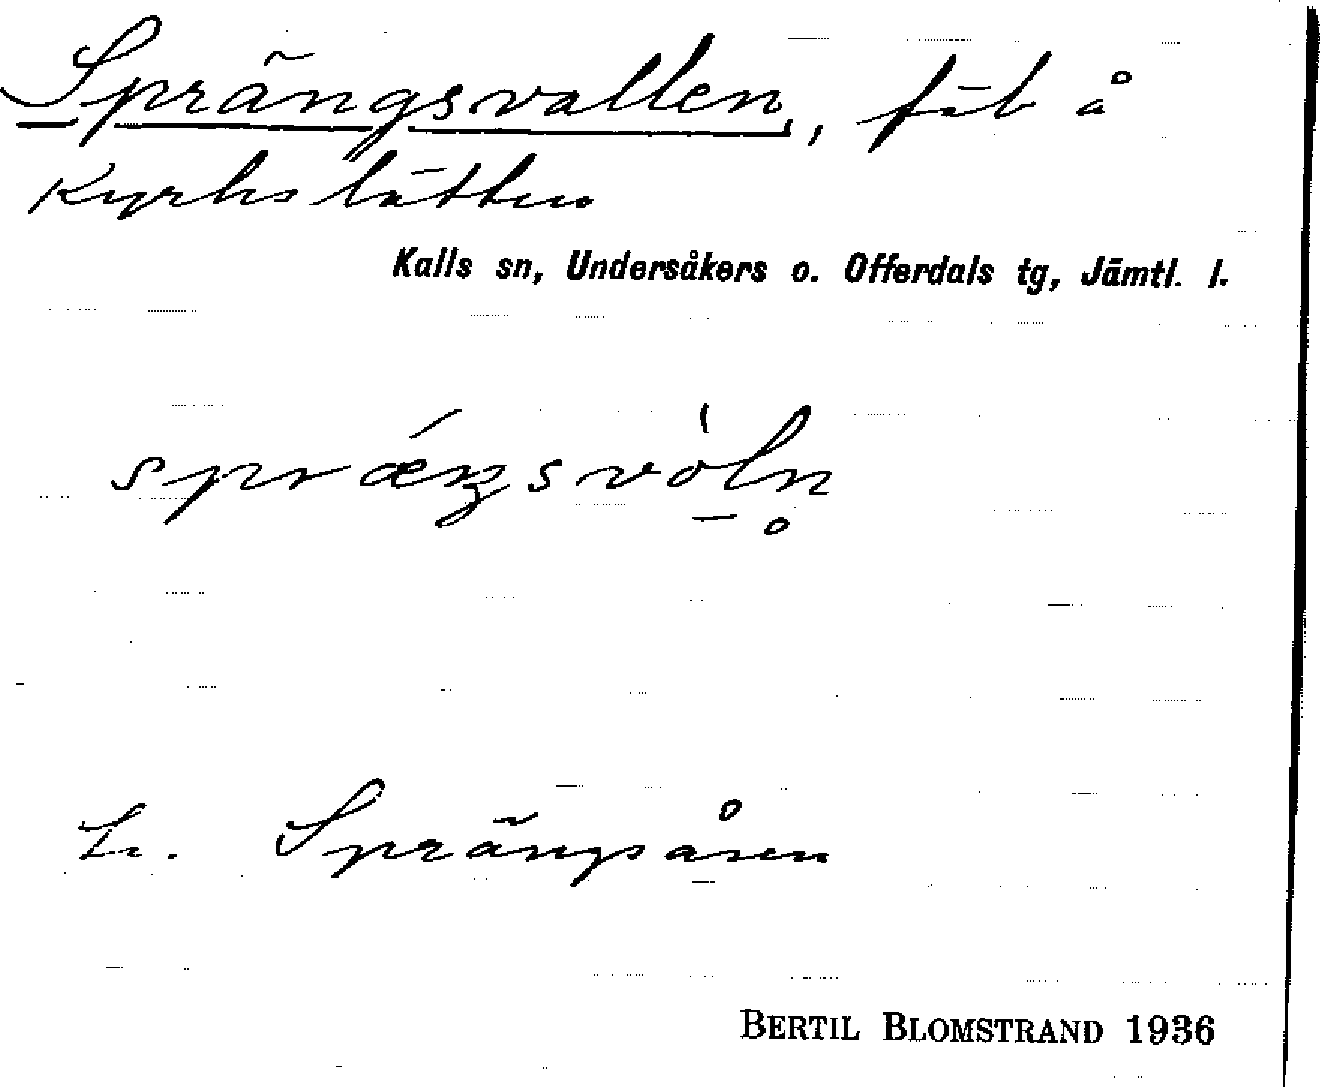 Sprängsvallen, fäb å
Kyrkslätten
Kalls sn, Undersåkers o. Offerdals tg, Jämtl. l.
spræŋsvòln̥
Sprängsåsen
BERTIL BLOMSTRAND 1936